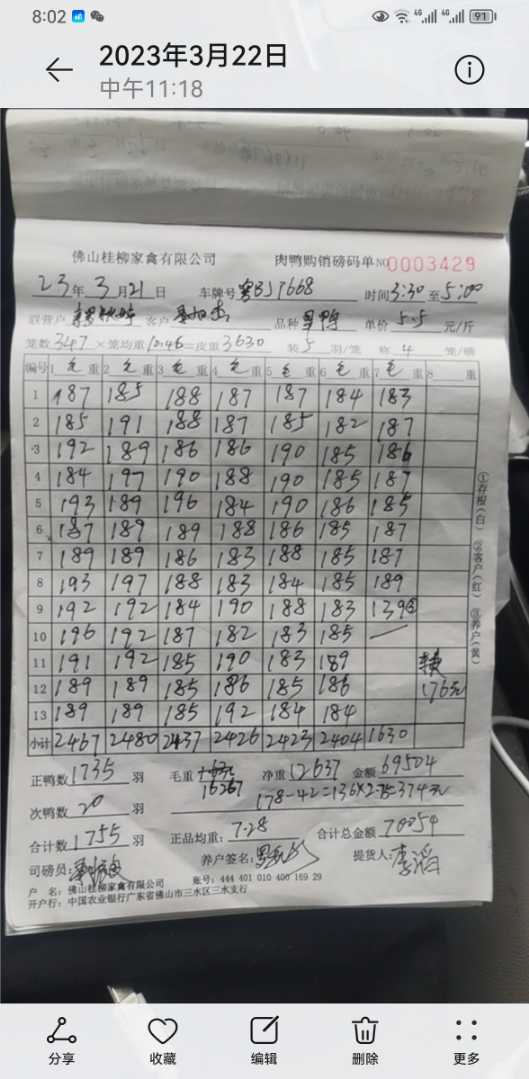 8:02 4G 4G 91
2023年3月22日
中午11:18
佛山桂柳家禽有限公司 肉鸭购销磅码单 NO 0003429
23年3月21日 车牌号粤BJ1668 时间3:30至5:00
联营户 客户 品种 单价 5.5 元/斤
笼数347×笼均重10.46=皮重3630 装5羽/笼 称4笼/磅
编号 1毛重 2毛重 3毛重 4毛重 5毛重 6毛重 7毛重 8 重
1 187 185 188 187 187 184 183
2 185 191 188 187 185 182 187
3 192 189 186 186 190 185 186
4 184 197 190 188 190 185 187
5 193 189 196 184 190 186 185
6 187 189 189 188 186 185 187
7 189 189 186 183 188 185 187
8 193 197 188 183 184 185 189
9 192 192 184 190 188 183 139③
10 196 192 187 182 183 185 —
11 191 192 185 190 183 189
12 189 189 185 186 185 186 176元
13 189 189 185 192 184 184
小计 2467 2480 2437 2426 2423 2404 1630
①存根(白) ②客户(红) ③养户(黄)
正鸭数1735羽 毛重 16267 净重12637 金额69504
次鸭数20羽 178-42=136×2.75=374元
合计数1755羽 正品均重:7.28 合计总金额70054
司磅员: 养户签名: 提货人:李滔
户 名:佛山桂柳家禽有限公司 账号:444 401 010 400 169 29
开户行:中国农业银行广东省佛山市三水区三水支行
分享 收藏 编辑 删除 更多